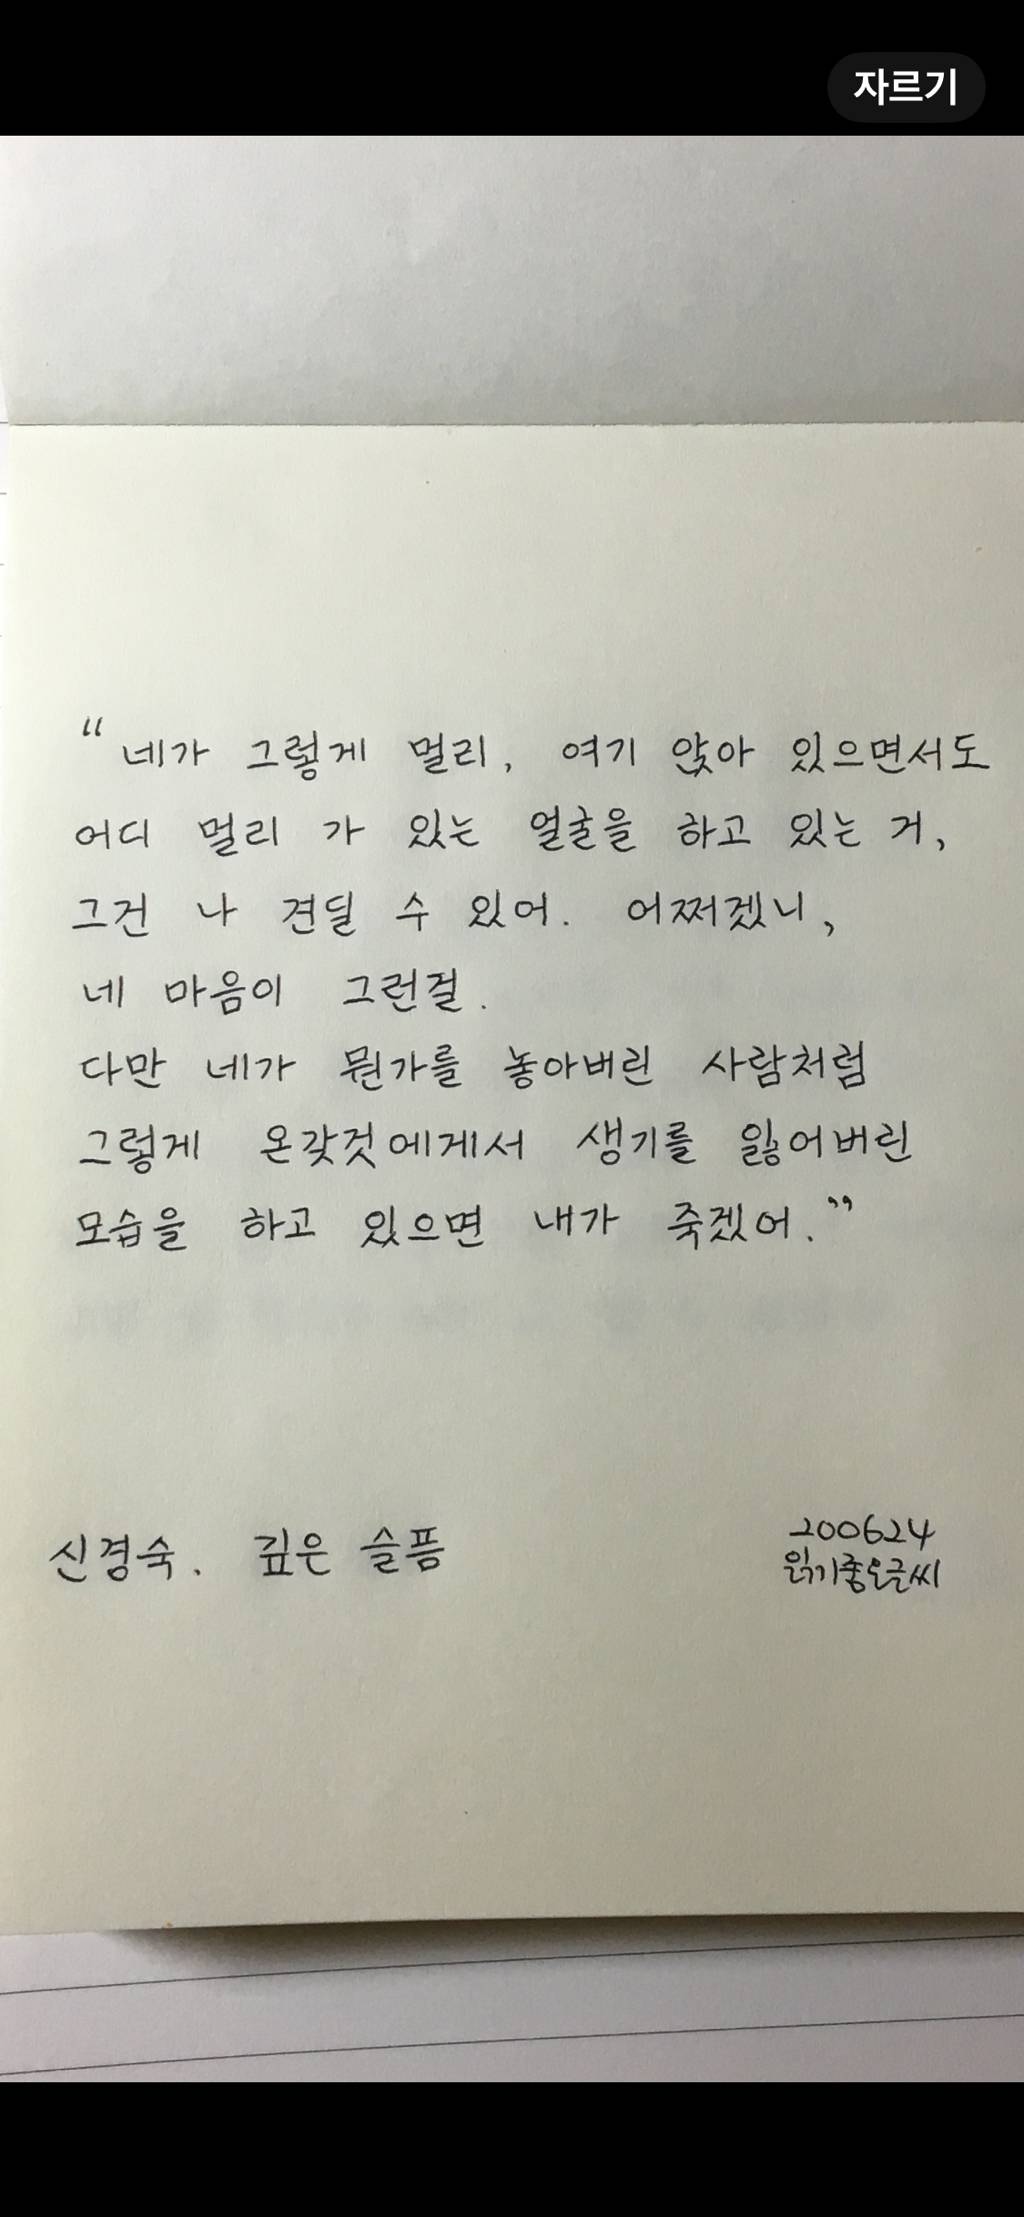 자르기
“네가 그렇게 멀리, 여기 앉아 있으면서도
어디 멀리 가 있는 얼굴을 하고 있는 거,
그건 나 견딜 수 있어. 어쩌겠니,
네 마음이 그런걸.
다만 네가 뭔가를 놓아버린 사람처럼
그렇게 온갖것에게서 생기를 잃어버린
모습을 하고 있으면 내가 죽겠어.”
신경숙. 깊은 슬픔
200624
읽기좋은글씨